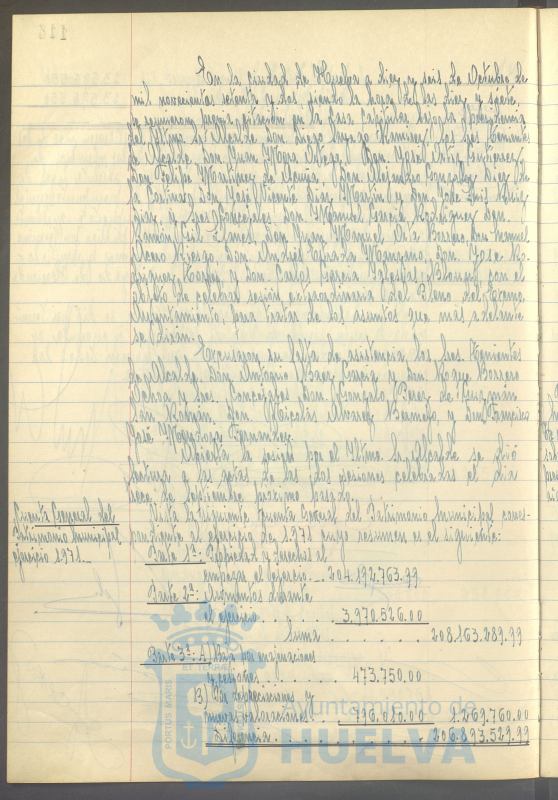 En la ciudad de Huelva a diez y seis de Octubre de
mil novecientos setenta y dos, siendo la hora de las diez y siete,
se reunieron previa citación en la Casa Capitular bajo la presidencia
del Iltmo. Sr. Alcalde Don Diego Ramírez, los Sres. Tenientes
de Alcalde, Don Juan Mora Don
Don Felipe Martínez de Acuña, Don Alejandro González Díez de
la Cortina Don José Vicente Díaz Martín y Don José Luis Ruiz
Díaz y Sres. Concejales Don Manuel García Rodríguez Don
Ramón Gil Don Juan Manuel Orta Borrero Don Manuel
Don Andrés Estrada Manzano, Don José
y Don Carlos García con el
objeto de celebrar sesión extraordinaria del Pleno del Excmo.
Ayuntamiento, para tratar de los asuntos que mas adelante
se dirán.
Excusaron su falta de asistencia los Sres. Tenientes
de Alcalde, Don Antonio Baez García y Don Roque Borrero
Ochoa y Sres. Concejales Don Gonzalo Perez de Guzmán
San Román, Don Nicolás Alvarez Bermejo y Don Francisco
José Fernandez.
Abierta la sesión por el Iltmo. Sr. Alcalde se dió
lectura a las actas de las dos sesiones celebradas el dia
de Septiembre próximo pasado.
Cuenta General del
Patrimonio Municipal
ejercicio 1971.-
Vista la siguiente Cuenta General del Patrimonio Municipal corres-
pondiente al ejercicio de 1971 cuyo resumen es el siguiente:
Parte 1ª: Propiedades y derechos al
empezar el Ejercicio... 204.192.763.99
Parte 2ª: Aumentos durante
el ejercicio . . . . . 3.970.526.00
Suma . . . . . . 208.163.289.99
Parte 3ª: A) Baja por enajenaciones
y cesiones . . . . . 473.750.00
B) Por depreciaciones y
nuevas valoraciones . . 796.010.00 1.269.760.00
Diferencia . . . . . . 206.893.529.99
PORTUS MARIS
ET TERRAE
Ayuntamiento de
HUELVA